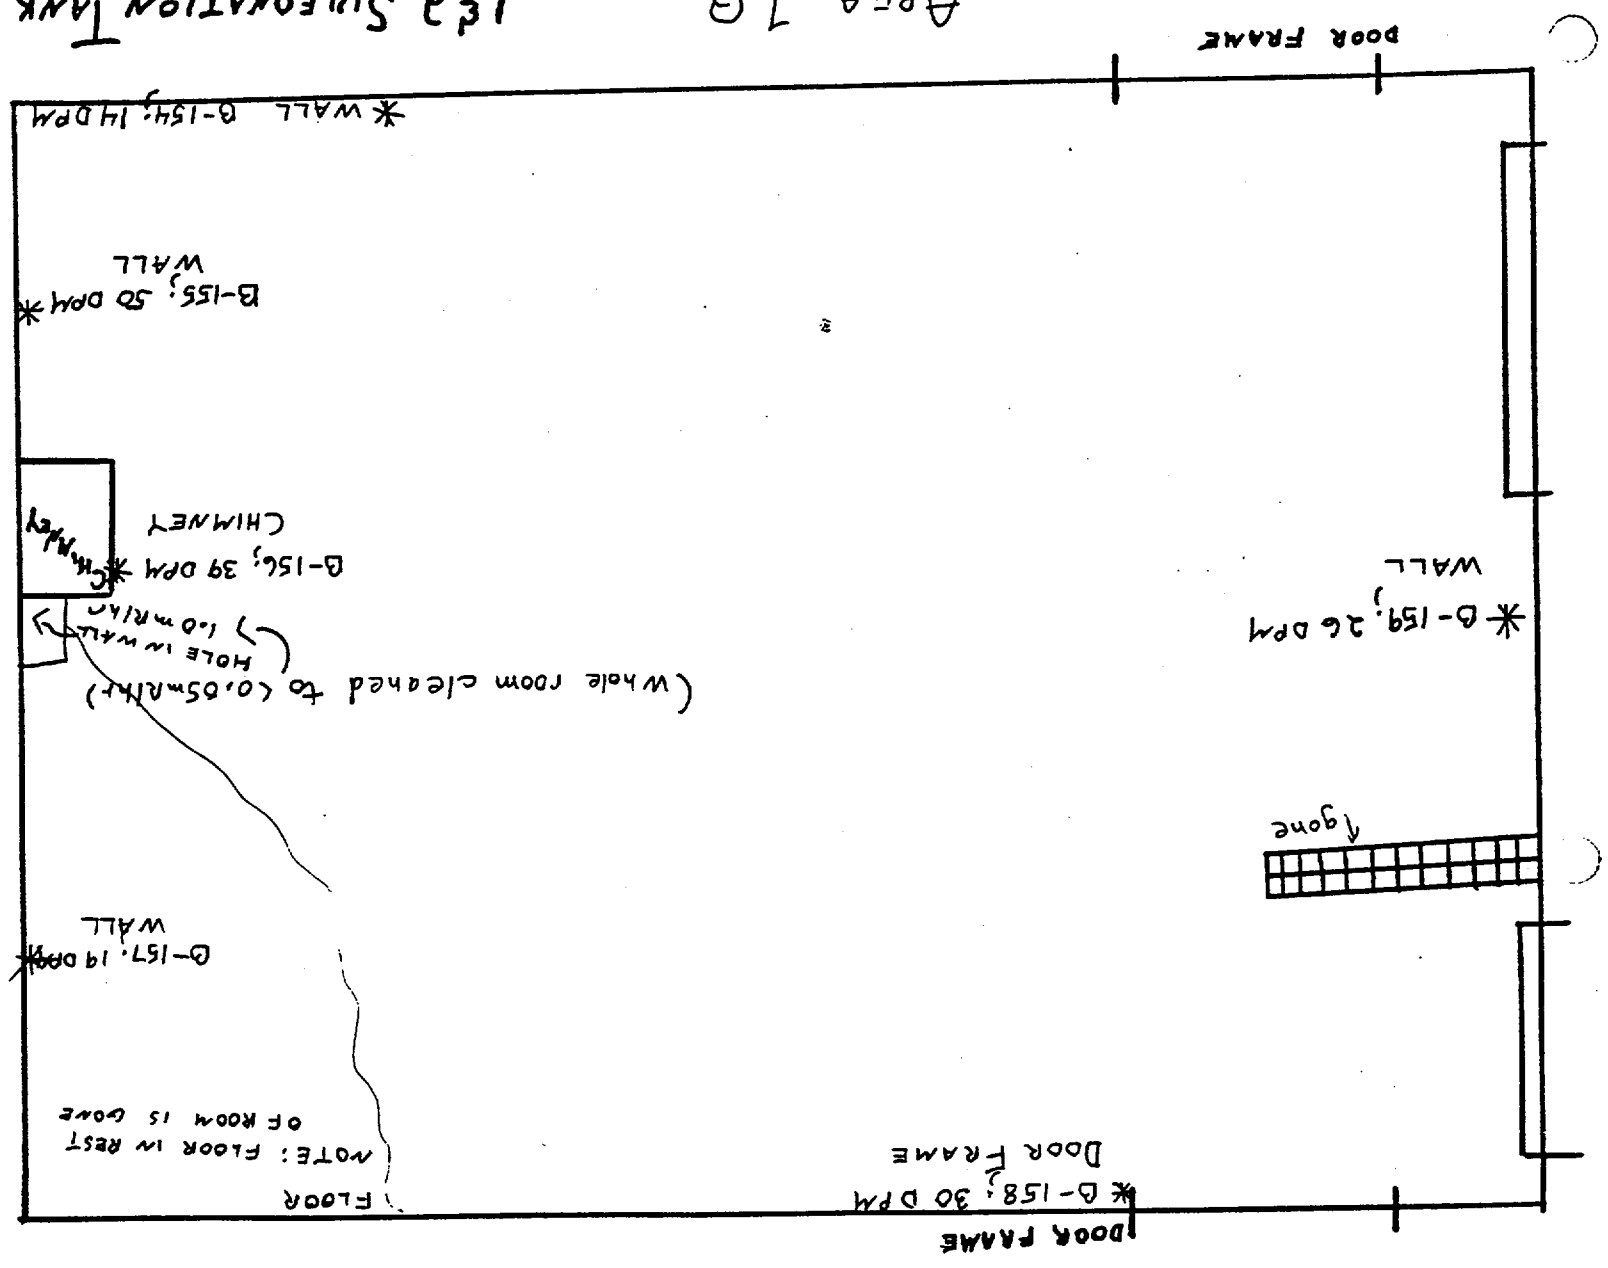 DOOR FRAME
* B-158; 30 DPM
DOOR FRAME
FLOOR
NOTE: FLOOR IN REST
OF ROOM IS GONE
B-157; 19 DPM *
WALL
↑ gone
(Whole room cleaned to <0.05mR/hr)
HOLE IN WALL
, 1.0 mR/hr
* B-159; 26 DPM
WALL
B-156; 39 DPM *
CHIMNEY
CHIMNEY
B-155; 50 DPM *
WALL
* WALL B-154; 14 DPM
DOOR FRAME
AREA
1&2 SULFONATION TANK